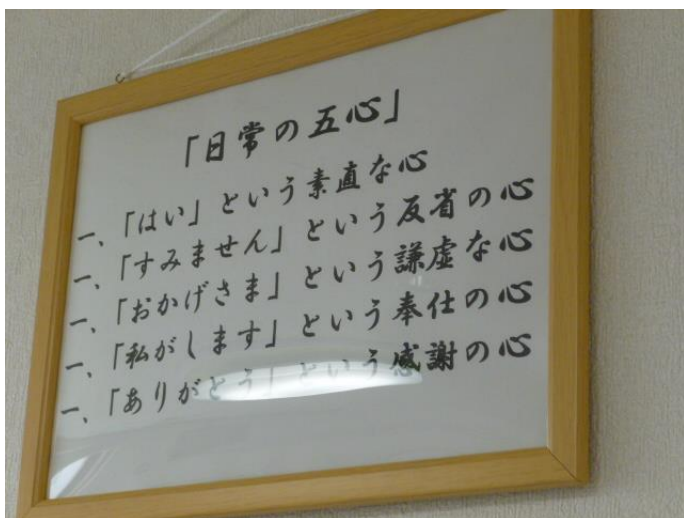 「日常の五心」
一、「はい」という素直な心
一、「すみません」という反省の心
一、「おかげさま」という謙虚な心
一、「私がします」という奉仕の心
一、「ありがとう」という感謝の心